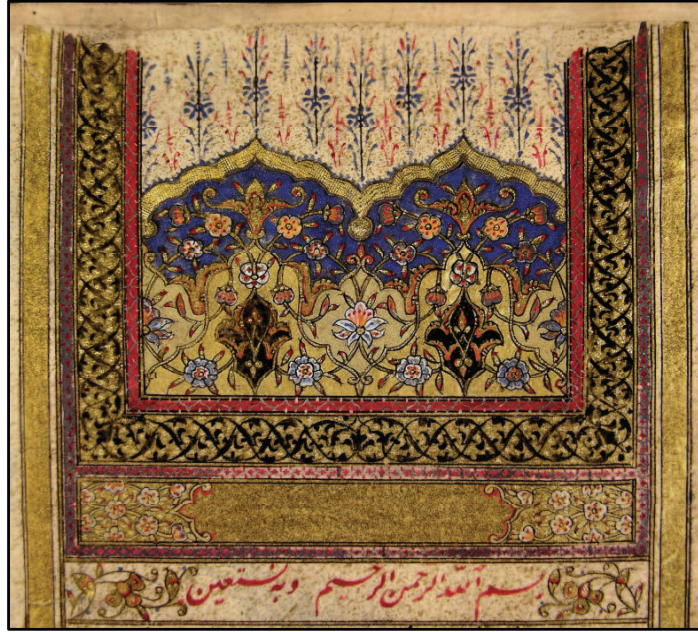 بسم الله الرحمن الرحیم وبه نستعین